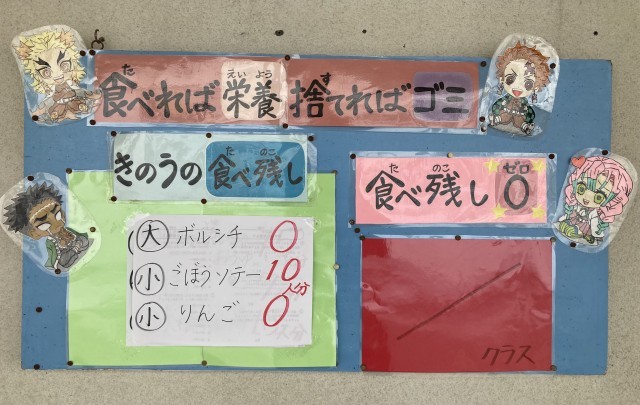 食べれば栄養 捨てればゴミ
きのうの食べ残し
(大) ボルシチ 0
(小) ごぼうソテー 10人分
(小) りんご 0
食べ残し0
クラス